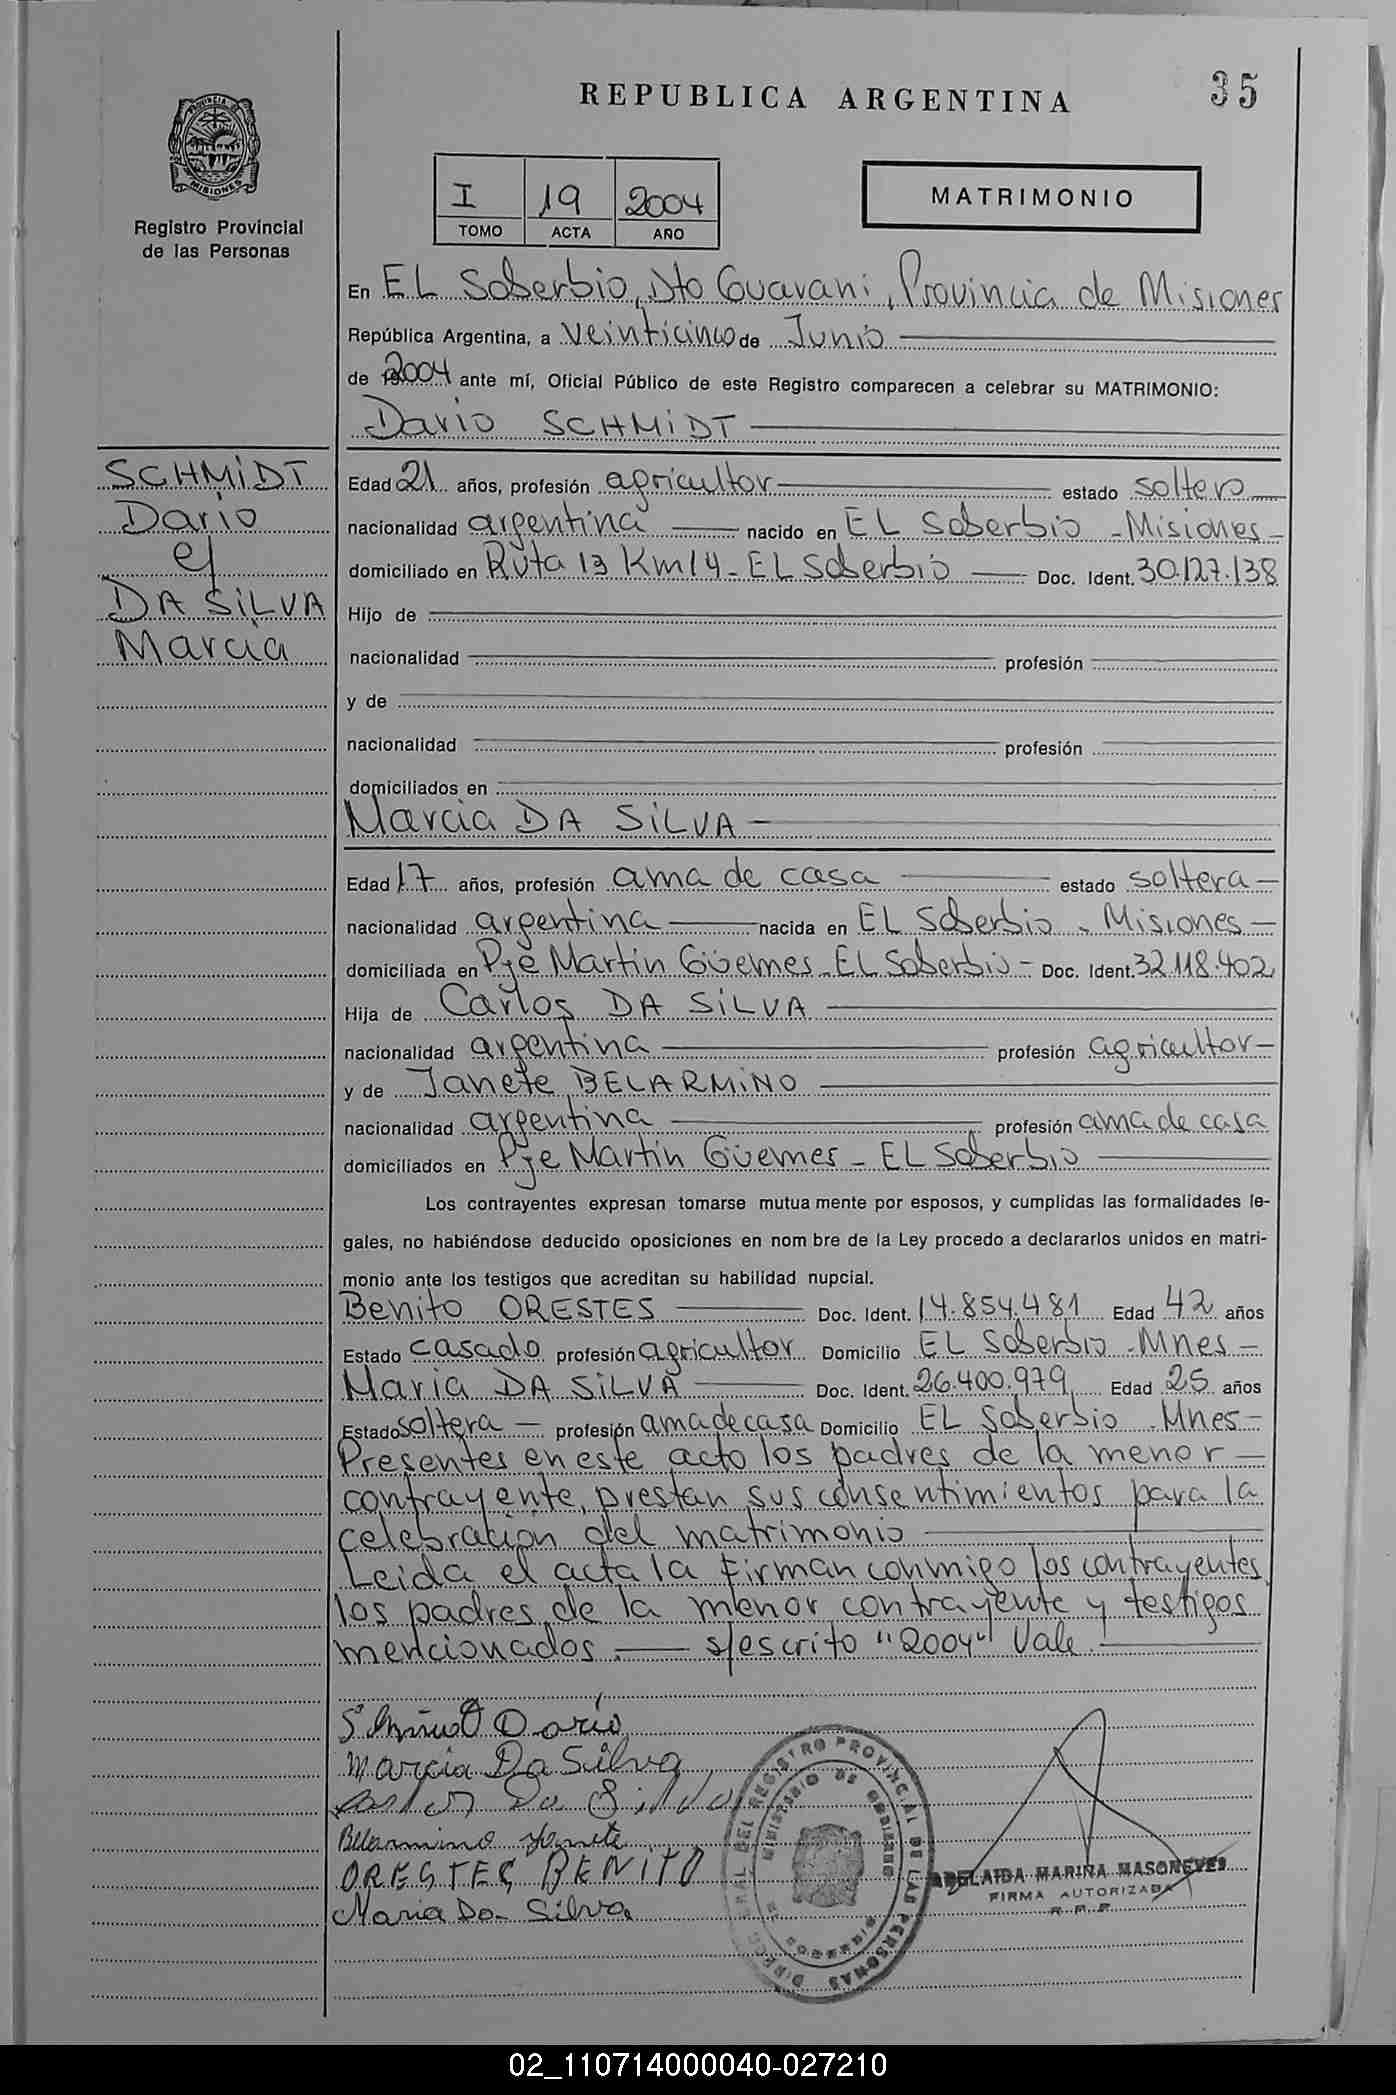 REPUBLICA ARGENTINA
35
PROVINCIA DE
MISIONES
Registro Provincial
de las Personas
I 19 2004
TOMO ACTA AÑO
MATRIMONIO
En EL Soberbio, Dto Guarani, Provincia de Misiones
República Argentina, a veinticinco de Junio
de 2004 ante mí, Oficial Público de este Registro comparecen a celebrar su MATRIMONIO:
Dario SCHMIDT
SCHMIDT
Dario
c/
DA SILVA
Marcia
Edad 21 años, profesión agricultor estado soltero
nacionalidad argentina nacido en EL Soberbio - Misiones -
domiciliado en Ruta 13 Km 14 - EL Soberbio Doc. Ident. 30.127.138
Hijo de
nacionalidad profesión
y de
nacionalidad profesión
domiciliados en
Marcia DA SILVA -
Edad 17 años, profesión ama de casa estado soltera -
nacionalidad argentina nacida en EL Soberbio - Misiones -
domiciliada en Pje Martin Güemes - EL Soberbio - Doc. Ident. 32.118.402
Hija de Carlos DA SILVA
nacionalidad argentina profesión agricultor -
y de Janete BELARMINO
nacionalidad argentina profesión ama de casa
domiciliados en Pje Martin Güemes - EL Soberbio
Los contrayentes expresan tomarse mutua mente por esposos, y cumplidas las formalidades le-
gales, no habiéndose deducido oposiciones en nom bre de la Ley procedo a declararlos unidos en matri-
monio ante los testigos que acreditan su habilidad nupcial.
Benito ORESTES Doc. Ident. 14.854.481 Edad 42 años
Estado casado profesión agricultor Domicilio EL Soberbio - Mnes -
Maria DA SILVA Doc. Ident. 26.400.979 Edad 25 años
Estado soltera - profesión ama de casa Domicilio EL Soberbio - Mnes -
Presentes en este acto los padres de la menor
contrayente, prestan sus consentimientos para la
celebración del matrimonio
Leida el acta la firman conmigo los contrayentes,
los padres de la menor contrayente y testigos
mencionados. s/escrito "2004" Vale.
Schmidt Dario
Marcia Da Silva
Carlos Da Silva
Belarmino Janete
ORESTES BENITO
Maria Da Silva
DEL REGISTRO PROVINCIAL DE LAS PERSONAS
MINISTERIO DE GOBIERNO
MISIONES
ADELAIDA MARINA MASONEVES
FIRMA AUTORIZADA
R. P. P.
02_110714000040-027210